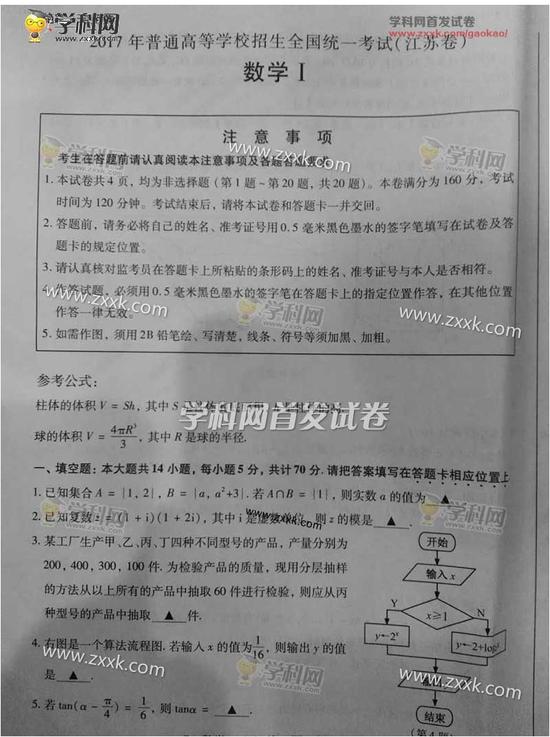 学科网首发试卷
www.zxxk.com/gaokao/
学科网
www.zxxk.com
2017年普通高等学校招生全国统一考试(江苏卷)
数学Ⅰ
注意事项
学科网
考生在答题前请认真阅读本注意事项及各题答题要求
1. 本试卷共4页,均为非选择题(第1题~第20题,共20题)。本卷满分为160分,考试
时间为120分钟。考试结束后,请将本试卷和答题卡一并交回。
2. 答题前,请务必将自己的姓名、准考证号用0.5毫米黑色墨水的签字笔填写在试卷及答
题卡的规定位置。
3. 请认真核对监考员在答题卡上所粘贴的条形码上的姓名、准考证号与本人是否相符。
4. 作答试题,必须用0.5毫米黑色墨水的签字笔在答题卡上的指定位置作答,在其他位置
作答一律无效。
www.zxxk.com
学科网
www.zxxk.com
5. 如需作图,须用2B铅笔绘、写清楚,线条、符号等须加黑、加粗。
参考公式:
柱体的体积 V = Sh, 其中 S
学科网首发试卷
球的体积 V = 4πR³/3, 其中 R 是球的半径.
一、填空题:本大题共14小题,每小题5分,共计70分.请把答案填写在答题卡相应位置上
1. 已知集合 A = {1,2}, B = {a, a²+3}. 若 A∩B = {1}, 则实数 a 的值为 ▲
2. 已知复数 z = (1+i)(1+2i), 其中 i 是虚数单位, 则 z 的模是 ▲ .
www.zxxk.com
3. 某工厂生产甲、乙、丙、丁四种不同型号的产品,产量分别为
200,400,300,100件. 为检验产品的质量,现用分层抽样
的方法从以上所有的产品中抽取60件进行检验,则应从丙
种型号的产品中抽取 ▲ 件.
4. 右图是一个算法流程图. 若输入 x 的值为 1/16, 则输出 y 的值
是 ▲ .
学科网
www.zxxk.com
5. 若 tan(α − π/4) = 1/6, 则 tanα = ▲ .
开始
输入 x
Y
x≥1
N
y←2ˣ
y←2+log
学科网
www.zxxk.com
结束
(第4题)